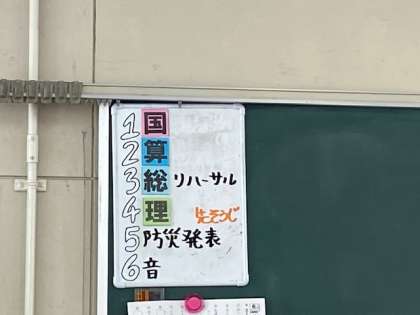 1 国
2 算
3 総 リハーサル
4 理 先そうじ
5 防災発表
6 音